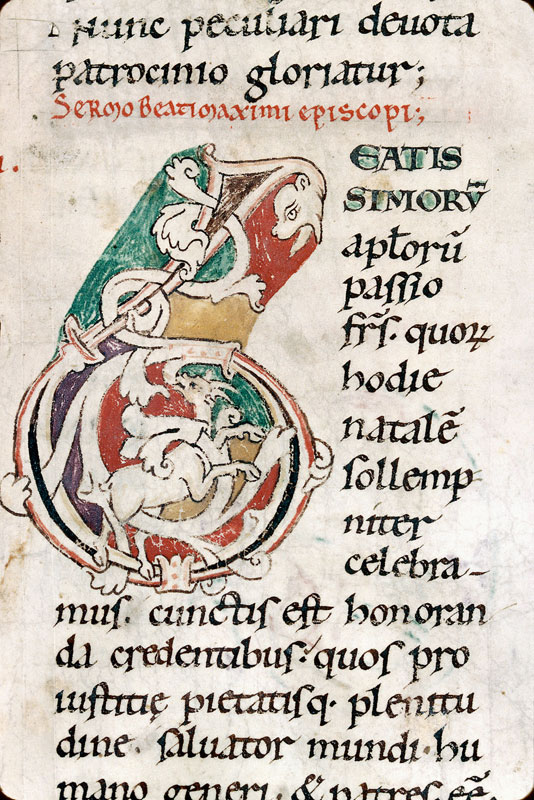 Nunc peculiari deuota
patrocinio gloriatur;
Sermo beati maximi episcopi;
BEATIS
SIMORŪ
apłorū
passio
fr̄s. quoꝝ
hodie
natalē
sollemp
niter
celebra-
mus. cunctis est honoran
da credentibus. quos pro
iustitię pietatisq. plenitu
dine. saluator mundi. hu
mano generi. & patres eē